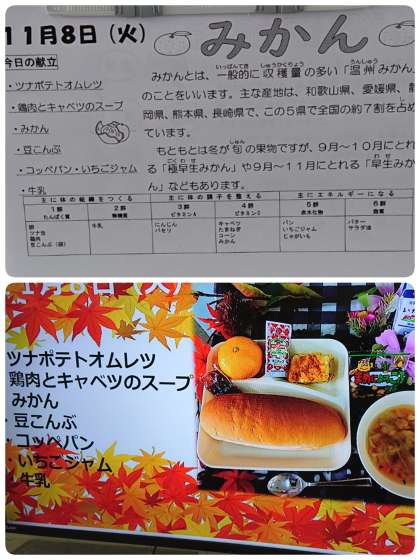 11月8日（火）
今日の献立
・ツナポテトオムレツ
・鶏肉とキャベツのスープ
・みかん
・豆こんぶ
・コッペパン・いちごジャム
・牛乳
みかん
みかんとは、一般的に収穫量の多い「温州みかん」
いっぱんてき しゅうかくりょう うんしゅう
のことをいいます。主な産地は、和歌山県、愛媛県、静
岡県、熊本県、長崎県で、この5県で全国の約7割を占め
ています。
もともとは冬が旬の果物ですが、9月～10月にとれ
しゅん
る「極早生みかん」や9月～11月にとれる「早生みか
ごくわせ わせ
ん」などもあります。
主に体の組織をつくる 主に体の調子を整える 主にエネルギーになる
1群 2群 3群 4群 5群 6群
たんぱく質 無機質 ビタミンA ビタミンC 炭水化物 脂質
卵 牛乳 にんじん キャベツ パン バター
ツナ缶 パセリ たまねぎ いちごジャム サラダ油
鶏肉 コーン じゃがいも
豆こんぶ（豆） みかん
11月8日（火）
ツナポテトオムレツ
鶏肉とキャベツのスープ
みかん
・豆こんぶ
・コッペパン
・いちごジャム
牛乳